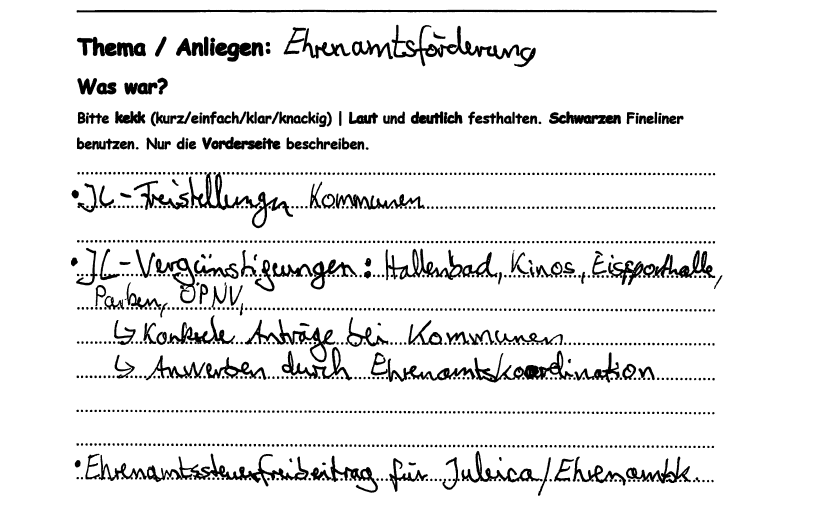 Thema / Anliegen: Ehrenamtsförderung
Was war?
Bitte kekk (kurz/einfach/klar/knackig) | Laut und deutlich festhalten. Schwarzen Fineliner
benutzen. Nur die Vorderseite beschreiben.
• JL-Freistellungen Kommunen
• JL-Vergünstigungen: Hallenbad, Kinos, Eissporthalle,
Parken, ÖPNV,
↳ Konkrete Anträge bei Kommunen
↳ Anwerben durch Ehrenamtskoordination
• Ehrenamtssteuerfreibeitrag für Juleica/Ehrenamtsk.